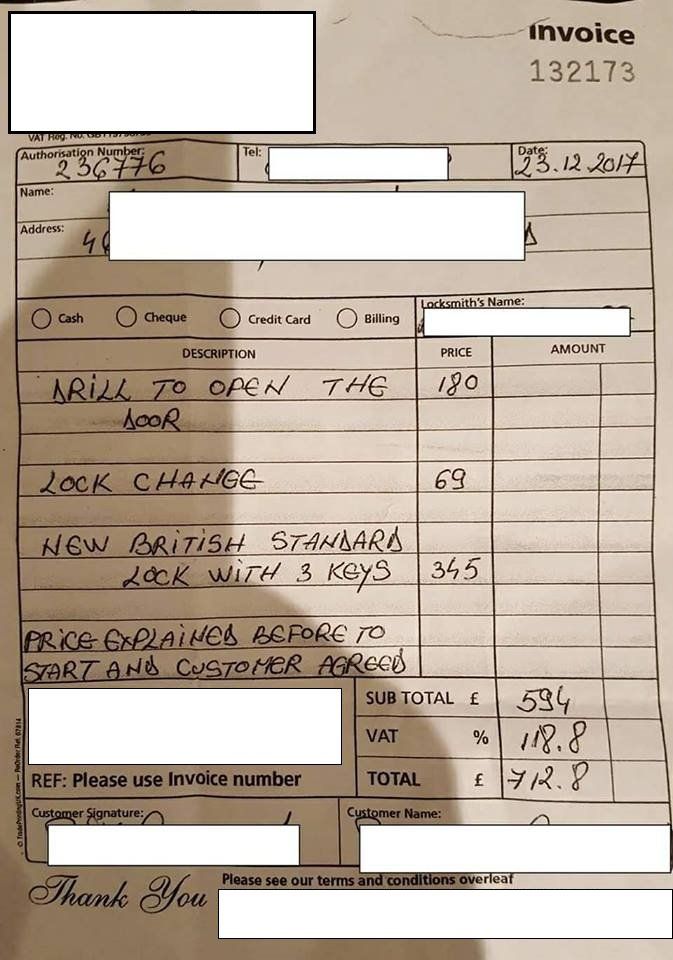 Invoice
132173
VAT Reg. No.
Authorisation Number: 236776 Tel: Date: 23.12.2017
Name:
Address:
Cash Cheque Credit Card Billing Locksmith's Name:
DESCRIPTION PRICE AMOUNT
DRILL TO OPEN THE 180
DOOR
LOCK CHANGE 69
NEW BRITISH STANDARD
LOCK WITH 3 KEYS 345
PRICE EXPLAINED BEFORE TO
START AND CUSTOMER AGREED
SUB TOTAL £ 594
VAT % 118.8
REF: Please use Invoice number TOTAL £ 712.8
Customer Signature: Customer Name:
Thank You Please see our terms and conditions overleaf